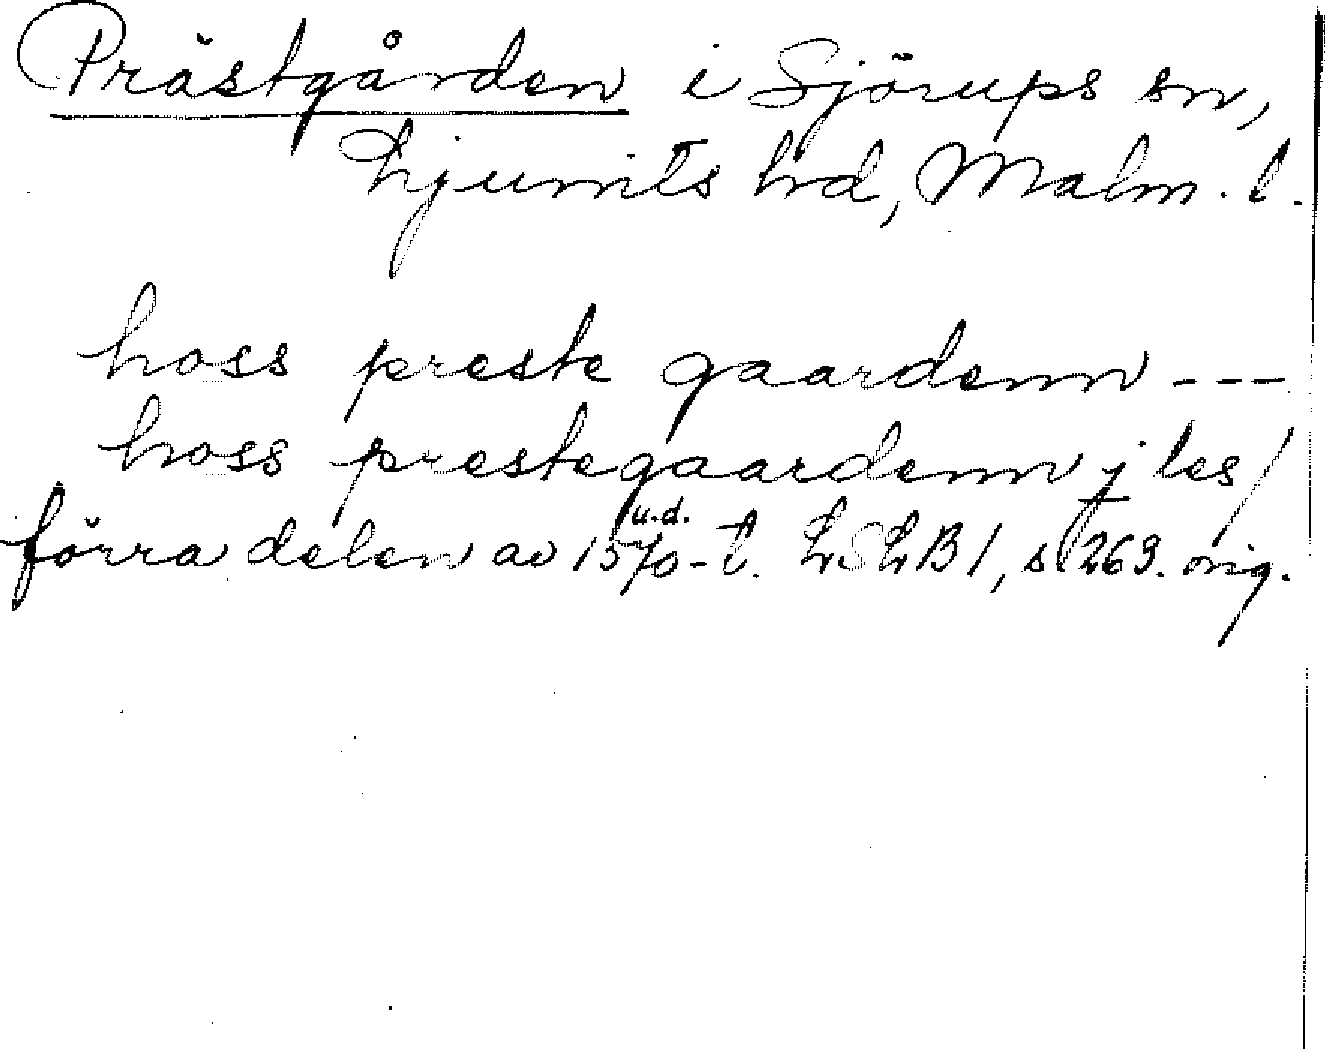 Prästgården i Sjörups sn,
Ljunits hrd, Malm. l.
hoss preste gaardenn ---
hoss prestegaardenn j les/
u.d.
förra delen av 1570-t. LSLB 1, s 269. orig.